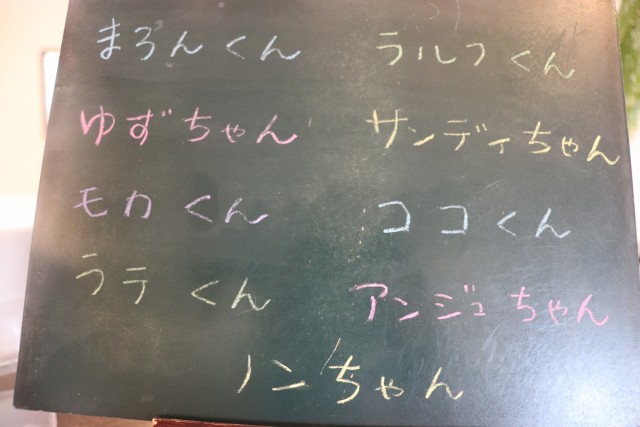 まろんくん
ラルフくん
ゆずちゃん
サンディちゃん
モカくん
ココくん
ラテくん
アンジュちゃん
ノンちゃん